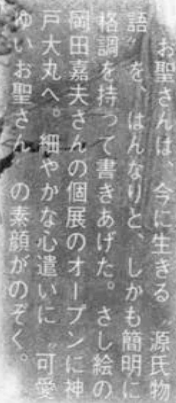 お聖さんは、今に生きる〝源氏物
語〟を、はんなりと、しかも簡明に
格調を持って書きあげた。さし絵の
岡田嘉夫さんの個展のオープンに神
戸大丸へ。細やかな心遣いに〝可愛
ゆいお聖さん〟の素顔がのぞく。